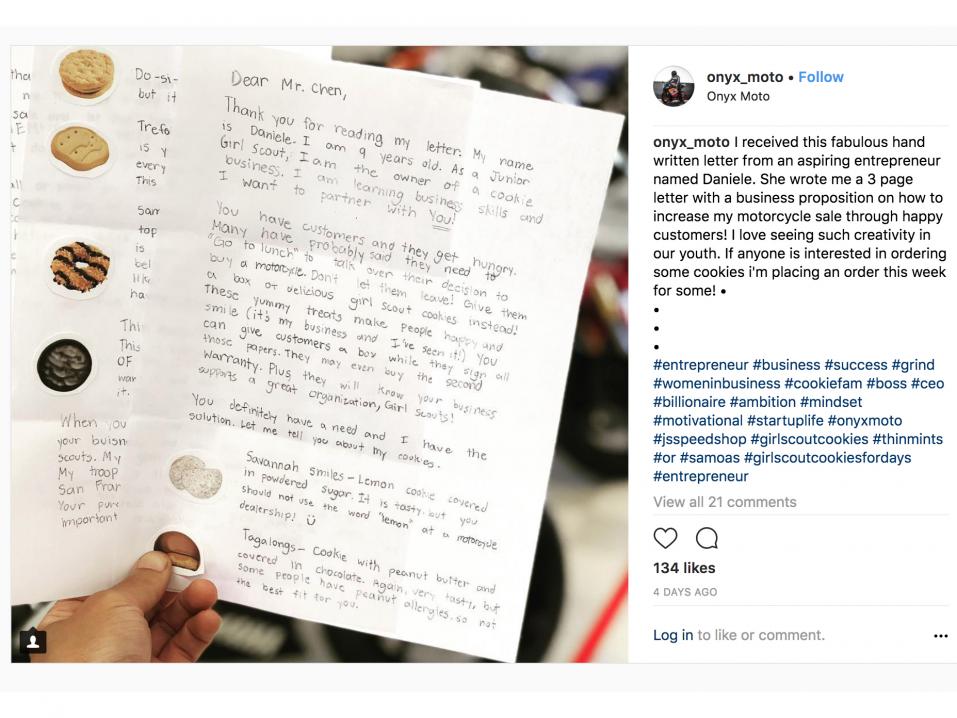 tha
n
sa
Do-si-
but it
Trefo
is y
every
This
Sam
top
is
bel
like
ha
Thi
This
OF
war
it.
When you
your buisn
scouts. My
My troop
San Fran
Your purc
important
Dear Mr. Chen,
Thank you for reading my letter. My name
is Daniele. I am 9 years old. As a Junior
Girl Scout, I am the owner of a cookie
business. I am learning business skills and
I want to partner with you!
You have customers and they get hungry.
Many have probably said they need to
"Go to lunch" to talk over their decision to
buy a motorcycle. Don't let them leave! Give them
a box of delicious girl scout cookies instead!
These yummy treats make people happy and
smile (it's my business and I've seen it!) You
can give customers a box while they sign all
those papers. They may even buy the second
warranty. Plus, they will know your business
supports a great organization, Girl Scouts!
You definitely have a need and I have the
solution. Let me tell you about my cookies.
Savannah smiles- Lemon cookie covered
in powdered sugar. It is tasty, but you
should not use the word "lemon" at a motorcycle
dealership!
Tagalongs- Cookie with peanut butter and
covered in chocolate. Again, very tasty, but
some people have peanut allergies, so not
the best fit for you.
onyx_moto • Follow
Onyx Moto
onyx_moto I received this fabulous hand
written letter from an aspiring entrepreneur
named Daniele. She wrote me a 3 page
letter with a business proposition on how to
increase my motorcycle sale through happy
customers! I love seeing such creativity in
our youth. If anyone is interested in ordering
some cookies i'm placing an order this week
for some! •
•
•
•
#entrepreneur #business #success #grind
#womeninbusiness #cookiefam #boss #ceo
#billionaire #ambition #mindset
#motivational #startuplife #onyxmoto
#jsspeedshop #girlscoutcookies #thinmints
#or #samoas #girlscoutcookiesfordays
#entrepreneur
View all 21 comments
134 likes
4 DAYS AGO
Log in to like or comment.